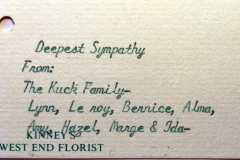 Deepest Sympathy
From:
The Kuck Family-
Lynn, Le roy, Bernice, Alma,
Amy, Hazel, Marge & Ida-
KINNEY'S
WEST END FLORIST